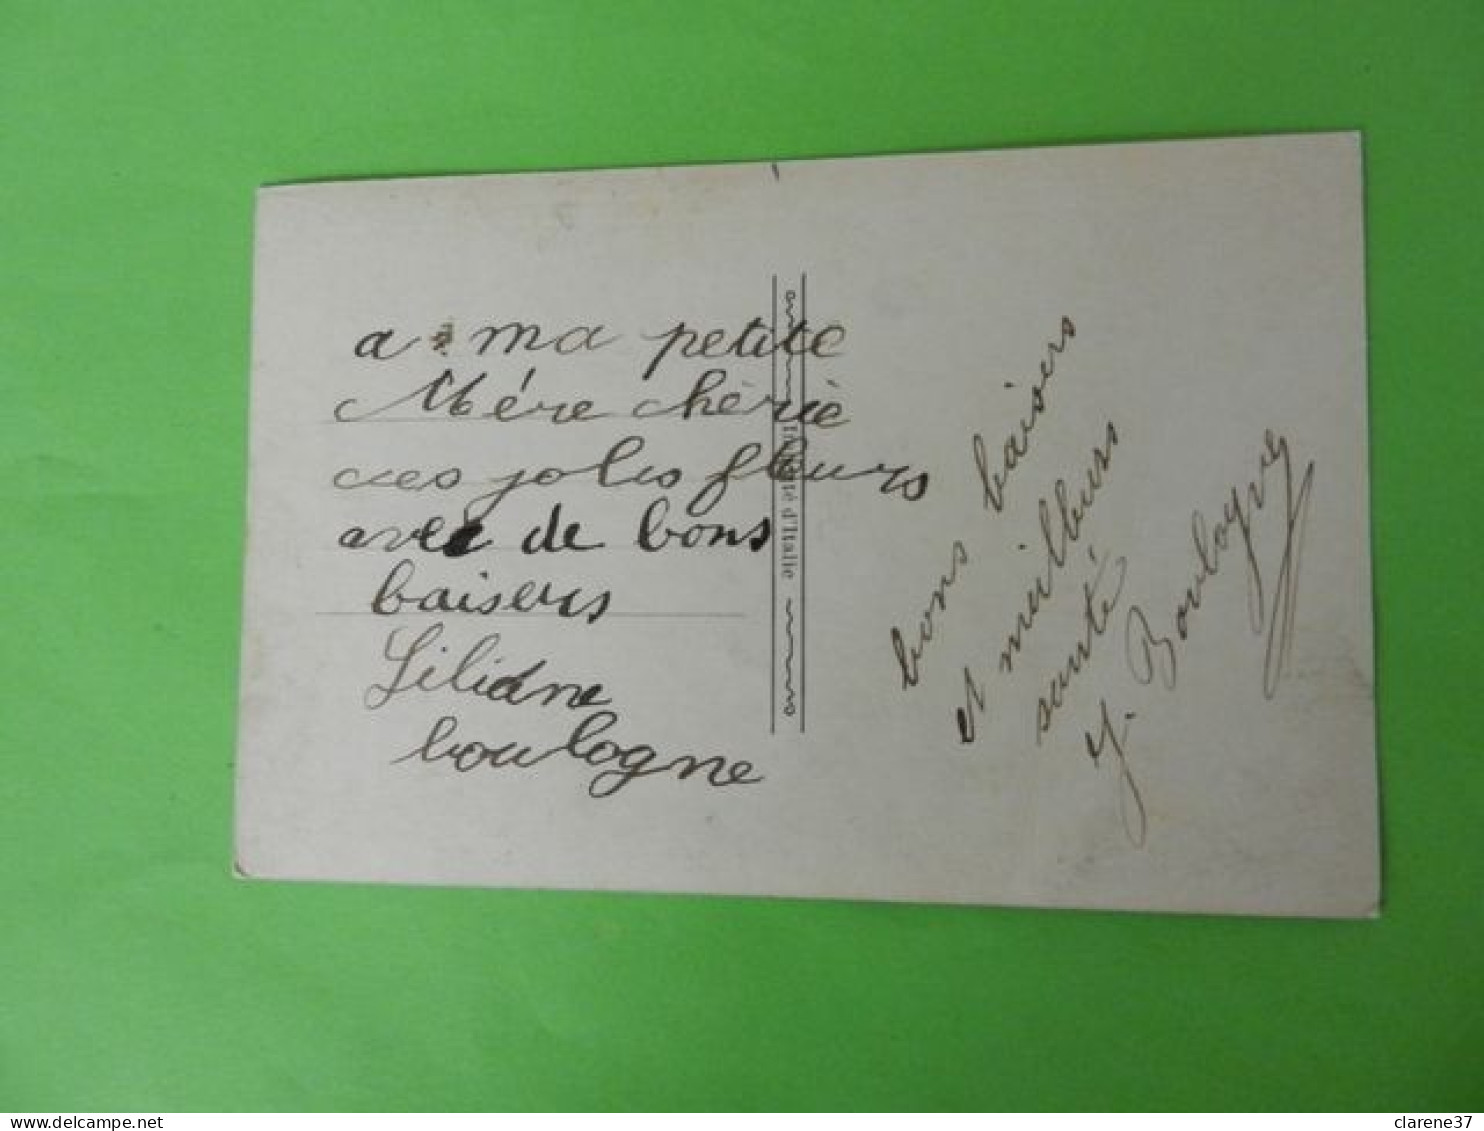 a ma petite
Mére chèrie
ces jolis fleurs
avec de bons
baisers
Liliane
boulogne
d'Italie
bons baisers
et meilleurs
santé
Y. Boulogne
clarene37